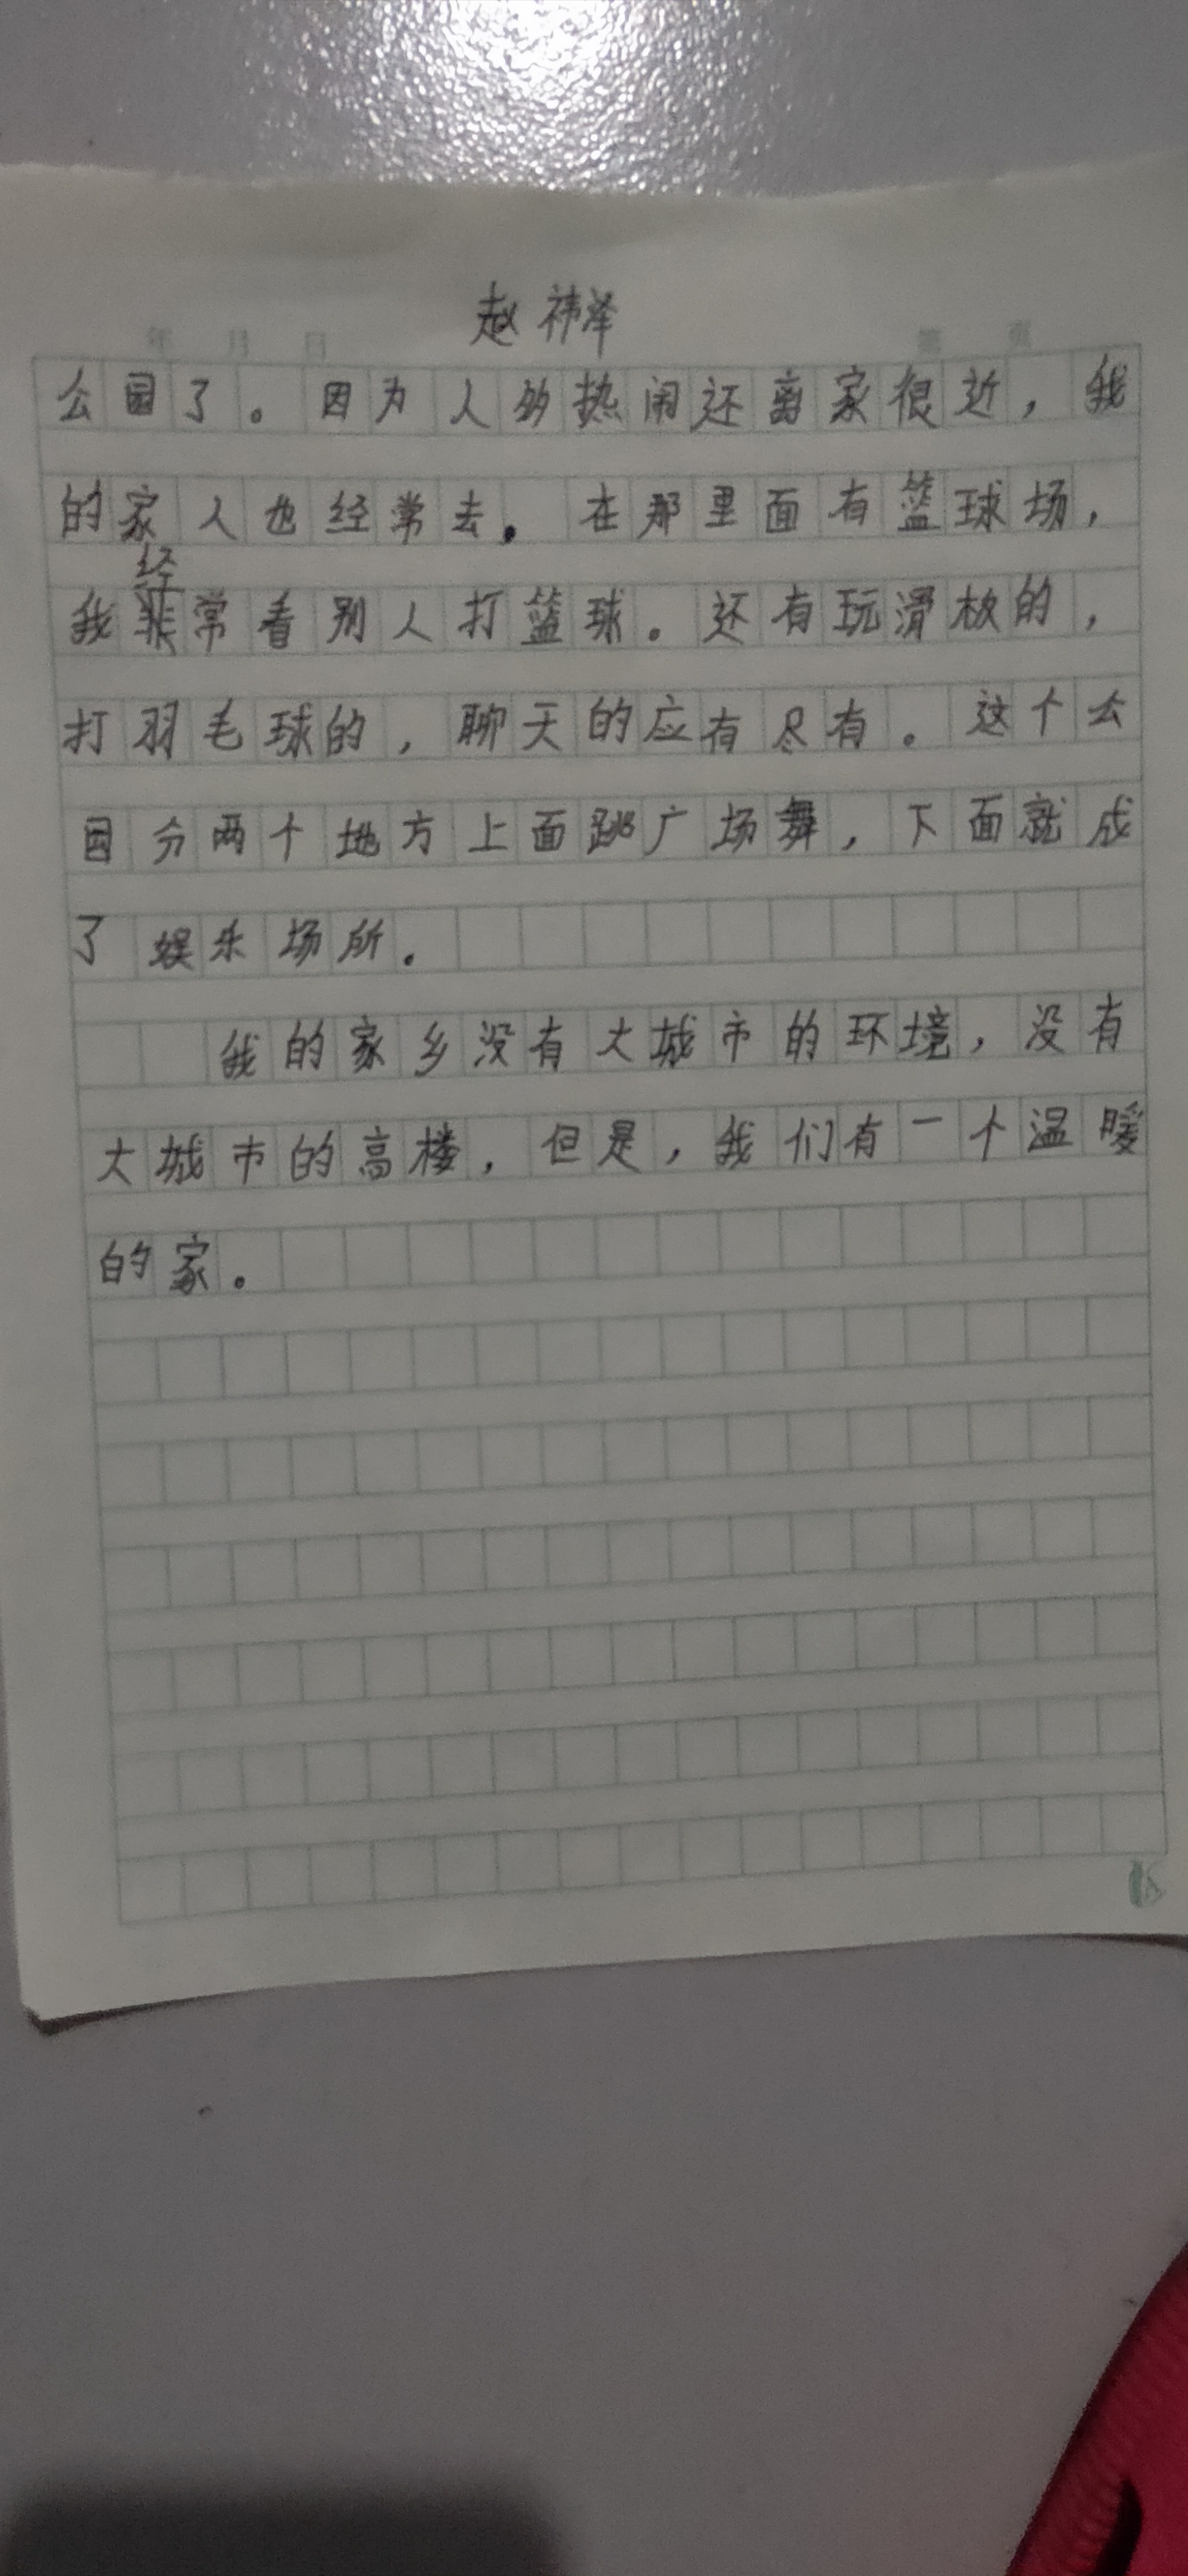 赵祎泽
年 月 日
公园了。因为人多热闹还离家很近，我
的家人也经常去。在那里面有篮球场，
经
我常看别人打篮球。还有玩滑板的，
打羽毛球的，聊天的应有尽有。这个公
园分两个地方上面跳广场舞，下面就成
了娱乐场所。
我的家乡没有大城市的环境，没有
大城市的高楼，但是，我们有一个温暖
的家。